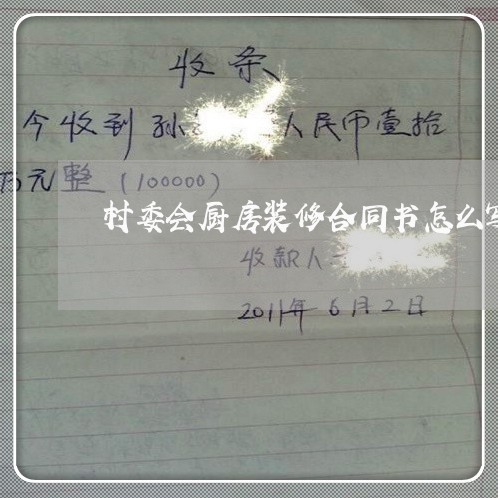 收条
今收到孙 人民币壹拾
万元整(100000)
村委会厨房装修合同书怎么写
收款人
2011年6月2日